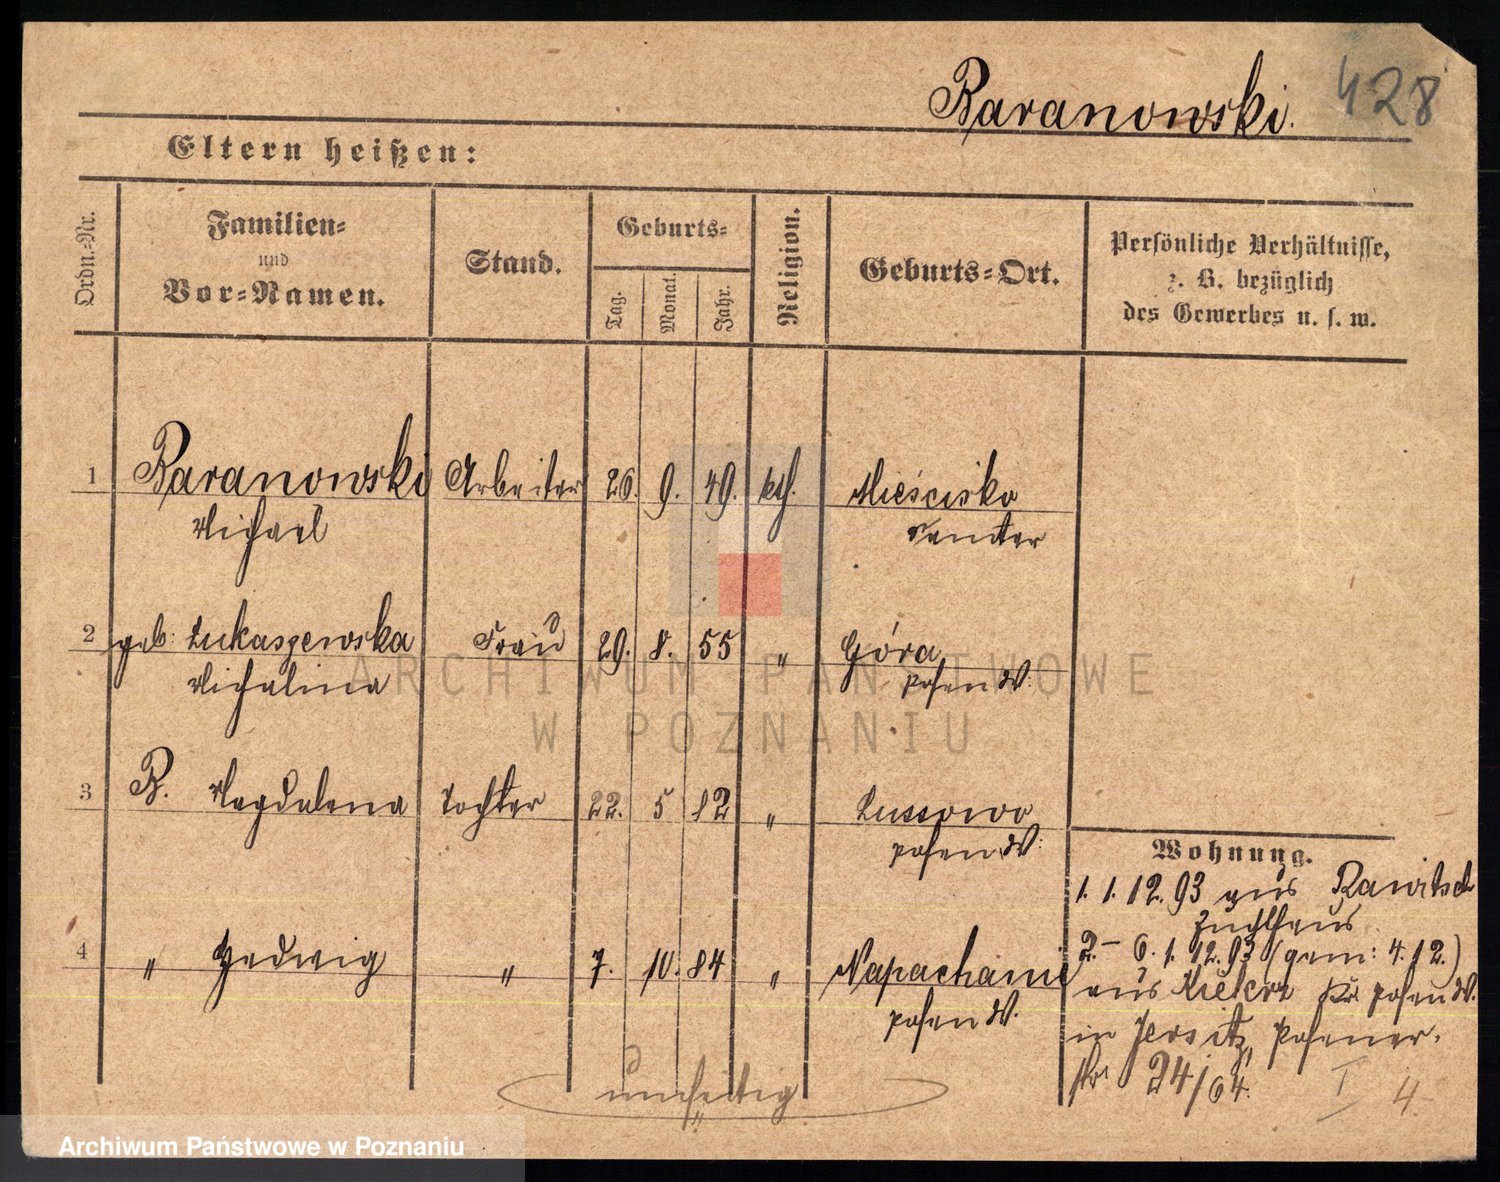 Baranowski. 428
Eltern heißen:
Ordn.=Nr.
Familien=
und
Vor=Namen.
Stand.
Geburts=
Tag.
Monat.
Jahr.
Religion.
Geburts=Ort.
Persönliche Verhältnisse,
z. B. bezüglich
des Gewerbes u. s. w.
1 Baranowski Arbeiter 26. 9. 49. kth. Mieścisko
Michael Samter
2 geb: Lukaszewska Frau 29. 8. 55 " Góra
Michalina Posen W.
3 B. Magdalena Tochter 22. 5 82 " Lussowo
Posen W.
4 " Hedwig " 7. 10. 84 " Napachanie
Posen W.
Wohnung.
1. 1.12.93 aus Rawitsch
Zuchthaus
2.- 6. 1. 12.93 (gem: 4.12.)
aus Kiekrz Kr Posen W.
in Jersitz, Posener-
str 24/64.
I 4.
umseitig
ARCHIWUM PAŃSTWOWE
W POZNANIU
Archiwum Państwowe w Poznaniu